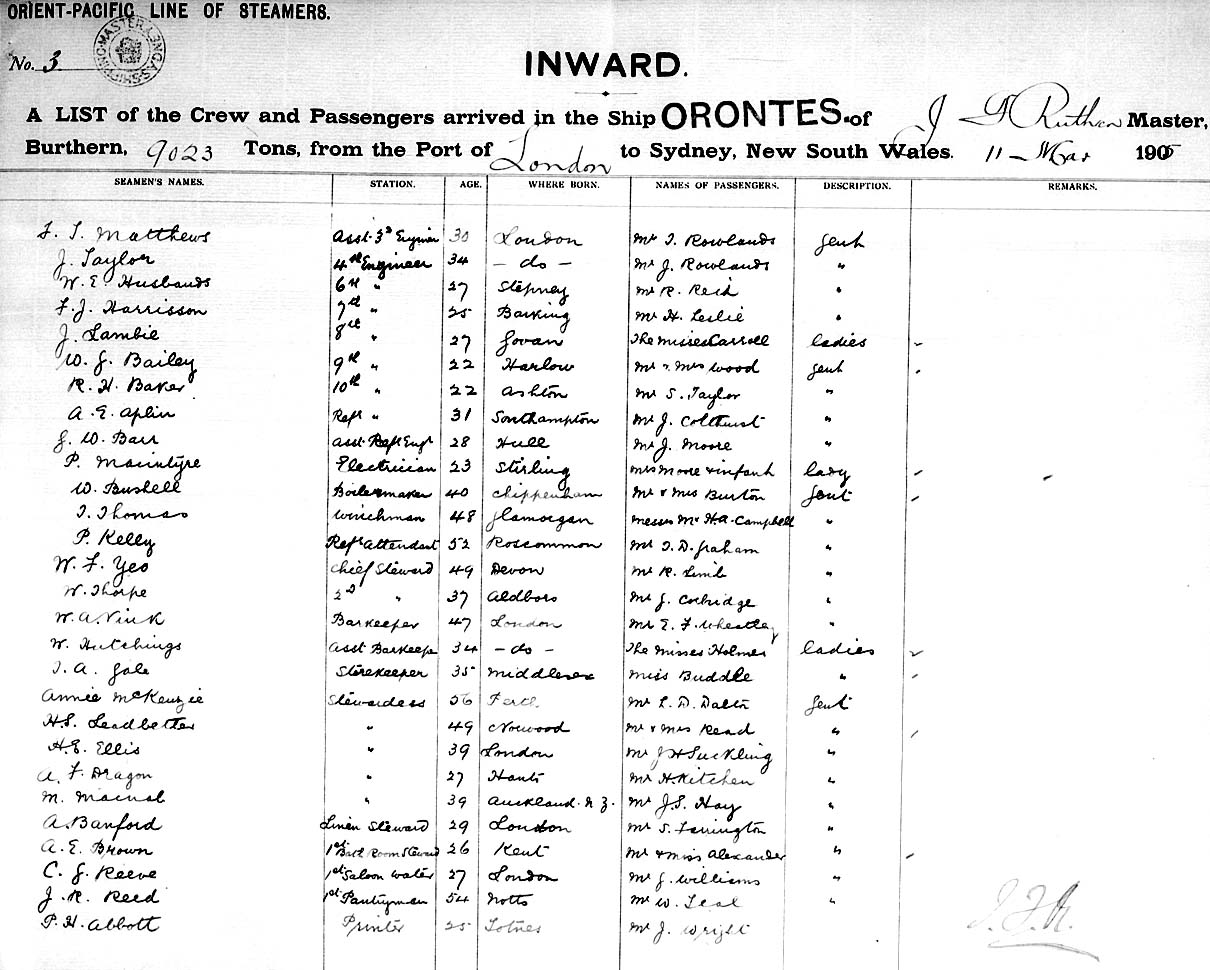 ORIENT-PACIFIC LINE OF STEAMERS.
No. 3
SHIPPING MASTER SYDNEY
INWARD.
A LIST of the Crew and Passengers arrived in the Ship ORONTES. of J F Ruthven Master,
Burthern, 9023 Tons, from the Port of London to Sydney, New South Wales. 11 – Mar 1905
SEAMEN'S NAMES. STATION. AGE. WHERE BORN. NAMES OF PASSENGERS. DESCRIPTION. REMARKS.
F. T. Matthews Asst. 3d Engineer 30 London Mr T. Rowlands Gent
J. Taylor 4th Engineer 34 – do – Mr J. Rowlands "
W. E. Husbands 6th " 27 Stepney Mr R. Reid "
F. J. Harrisson 7th " 25 Barking Mr H. Leslie "
J. Lambie 8th " 27 Govan The Misses Carroll ladies
W. G. Bailey 9th " 22 Harlow Mr & Mrs Wood gent
R. H. Baker 10th " 22 Ashton Mr S. Taylor "
A. E. Aplin Refr " 31 Southampton Mr J. Colthurst "
G. W. Barr Asst Refr Engr 28 Hull Mr J. Moore "
P. Macintyre Electrician 23 Stirling Mrs Moore & infant lady
W. Bushell Boilermaker 40 Chippenham Mr & Mrs Burton Gent
T. Thomas Winchman 48 Glamorgan Messrs Mr H.A. Campbell "
P. Kelly Refr Attendant 52 Roscommon Mr T. D. Graham "
W. F. Yeo Chief Steward 49 Devon Mr R. Limb "
W. Thorpe 2d " 37 Aldboro Mr G. Corbridge "
W. A. Vink Barkeeper 47 London Mr E. F. Wheatley "
W. Hutchings Asst Barkeepr 34 – do – The Misses Holmes ladies
T. A. Gale Storekeeper 35 Middlesex Miss Buddle "
Annie McKenzie Stewardess 56 Mr L. D. Dalton Gent
H.S. Leadbetter " 49 Norwood Mr & Mrs Read "
H.E. Ellis " 39 London Mr J H Suckling "
A. F. Dragon " 27 Hants Mr H. Kitchen "
M. Macnab " 39 Auckland. N Z. Mr J.S. Hay "
A. Banford Linen Steward 29 London Mr S. Farrington "
A. E. Brown 1st Bath Room Steward 26 Kent Mr & Miss Alexander "
C. G. Reeve 1st Saloon Waiter 27 London Mr G. Williams "
J. R. Reed 1st Pantryman 54 Notts Mr W. Teal "
P. H. Abbott Printer 25 Totnes Mr J. Wright
J.F.R.